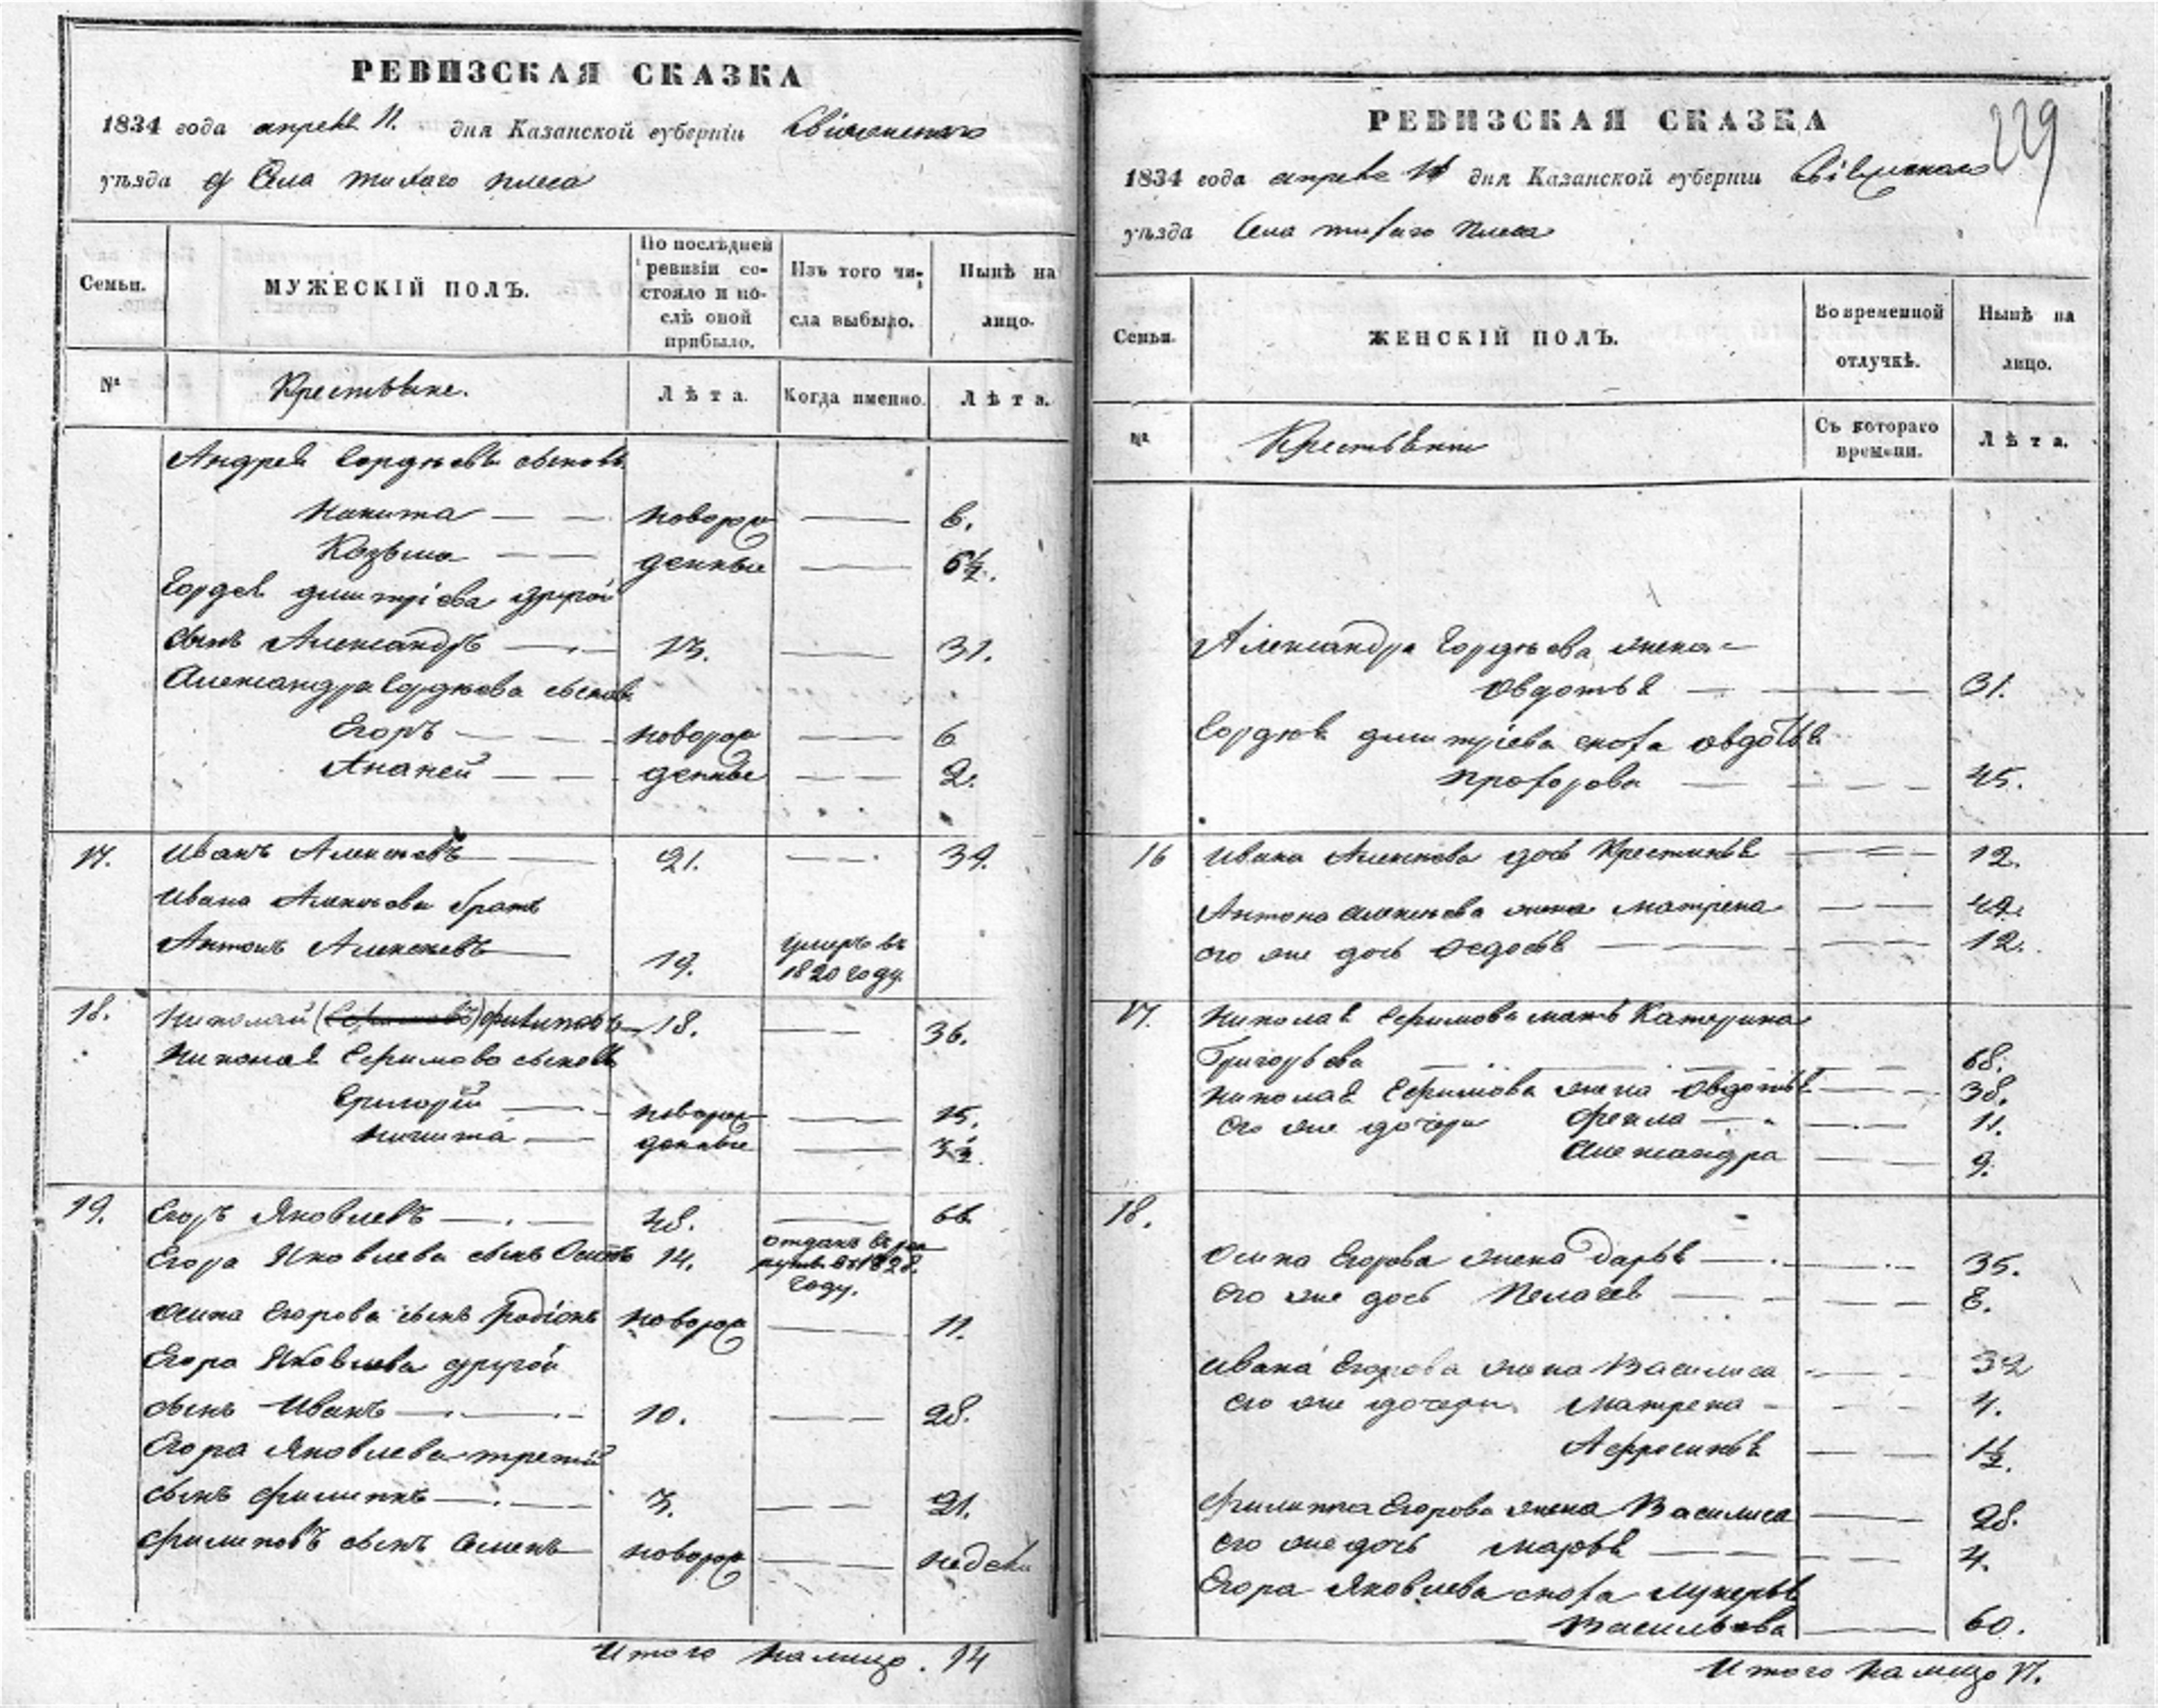 РЕВИЗСКАЯ СКАЗКА
1834 года апреля 11. дня Казанской губерніи Свіяжскаго
уѣзда Села тихаго плеса
Семьи.
МУЖЕСКІЙ ПОЛЪ.
По послѣдней ревизіи состояло и послѣ оной прибыло.
Изъ того числа выбыло.
Нынѣ на лицо.
№
Крестьяне.
Лѣта.
Когда именно.
Лѣта.
Андрея Гордѣева сыновья
Никита — — новорож — 6.
Козьма — — денные — 6½.
Гордея дмитріева другой
сынъ Александръ — 13. — 31.
Александра Гордѣева сыновья
Егоръ — — новорож — 6
Ананей — — денные — — 2.
17. Иванъ Алексѣевъ — 21. — — 39.
Ивана Алексѣева братъ
Антонъ Алексѣевъ — 19. умеръ въ 1820 году.
18. Николай (Ефимовъ) филиповъ — 18. — — 36.
Николая Ефимова сыновья
Григорій — новорож — 15.
Никита — денные — 3½.
19. Егоръ Яковлевъ — 48. — 66.
Егора Яковлева сынъ Осипъ 14. отданъ въ рекруты въ 1828. году.
Осипа Егорова сынъ Родіонъ новорож — 11.
Егора Яковлева другой
сынъ Иванъ — 10. — — 28.
Егора Яковлева третій
сынъ филиппъ — 3. — — 21.
филиповъ сынъ Семенъ новорож — — недели
Итого налицо. 14
229
РЕВИЗСКАЯ СКАЗКА
1834 года апреля 11 дня Казанской губерніи Свіяжскаго
уѣзда Села тихаго плеса
Семьи.
ЖЕНСКІЙ ПОЛЪ.
Во временной отлучкѣ.
Нынѣ на лицо.
№
Крестьянки
Съ котораго времени.
Лѣта.
Александра Гордѣева жена
Овдотья — — — 31.
Гордѣя дмитріева сноха овдотья
прохорова — — — 45.
16 Ивана Алексѣева дочь Крестинья — — 12.
Антона алексѣева жена матрена — — 42.
его же дочь Федосья — — 12.
17. Николая Ефимова мать Катерина
Григорьева — — 68.
Николая Ефимова жена овдотья — — 38.
его же дочери фекла — — 11.
александра — — 9.
18.
Осипа Егорова жена Дарья — — 35.
его же дочь Пелагея — — 8.
Ивана Егорова жена Василиса — — 32
его же дочери матрена — — 4.
Афросинья — — 1½.
филиппа Егорова жена Василиса — 28.
его же дочь марья — — 4.
Егора Яковлева сноха лукерья
Васильева — 60.
Итого налицо 17.